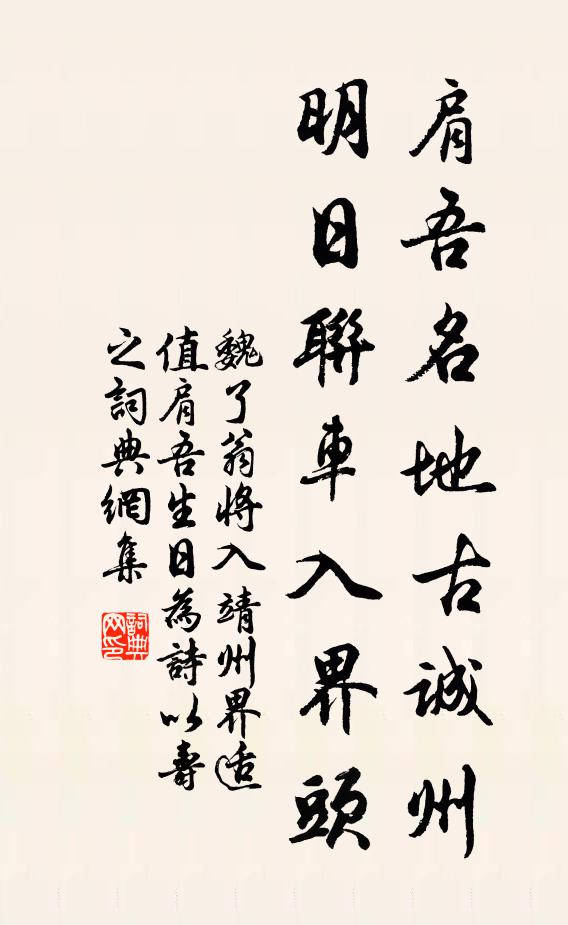 肩吾名地古誠州
明日聯車入界頭
魏了翁將入靖州界适
值肩吾生日為詩以壽
之詞典網集
詞典
网印